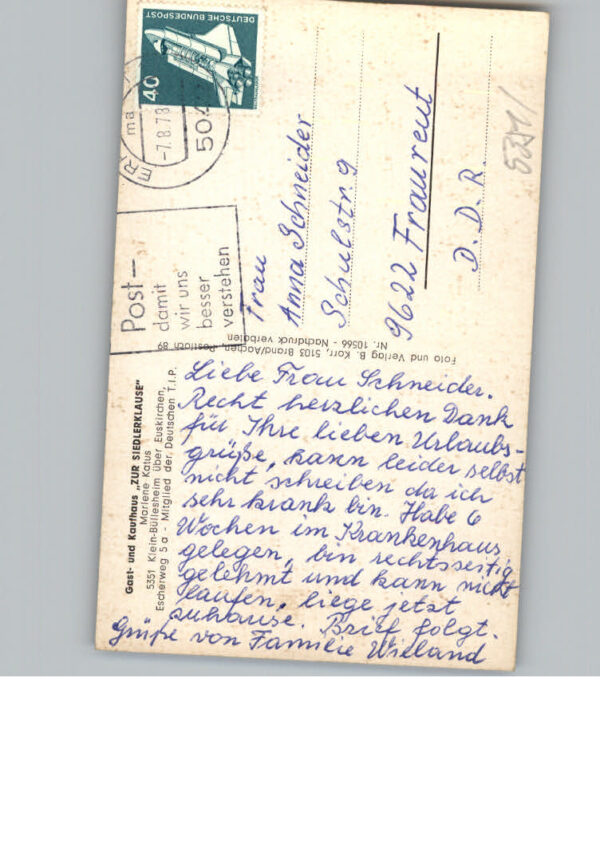 Gast- und Kaufhaus „ZUR SIEDLERKLAUSE"
Marlene Katus
5351 Klein-Büllesheim über Euskirchen,
Escherweg 5 a - Mitglied der Deutschen T.I.P.
Liebe Frau Schneider.
Recht herzlichen Dank
für Ihre lieben Urlaubs-
grüße, kann leider selbst
nicht schreiben da ich
sehr krank bin. Habe 6
Wochen im Krankenhaus
gelegen, bin rechtsseitig
gelehmt und kann nicht
laufen, liege jetzt
zuhause. Brief folgt.
Grüße von Familie Wieland
Foto und Verlag B. Korr, 5103 Brand/Aachen, Postfach 89
Nr. 10566 - Nachdruck verboten
DEUTSCHE BUNDESPOST
40
-7.8.78
504
Post-
damit
wir uns
besser
verstehen
Frau
Anna Schneider
Schulstr. 9
9622 Fraureut
D. D. R.
5351/